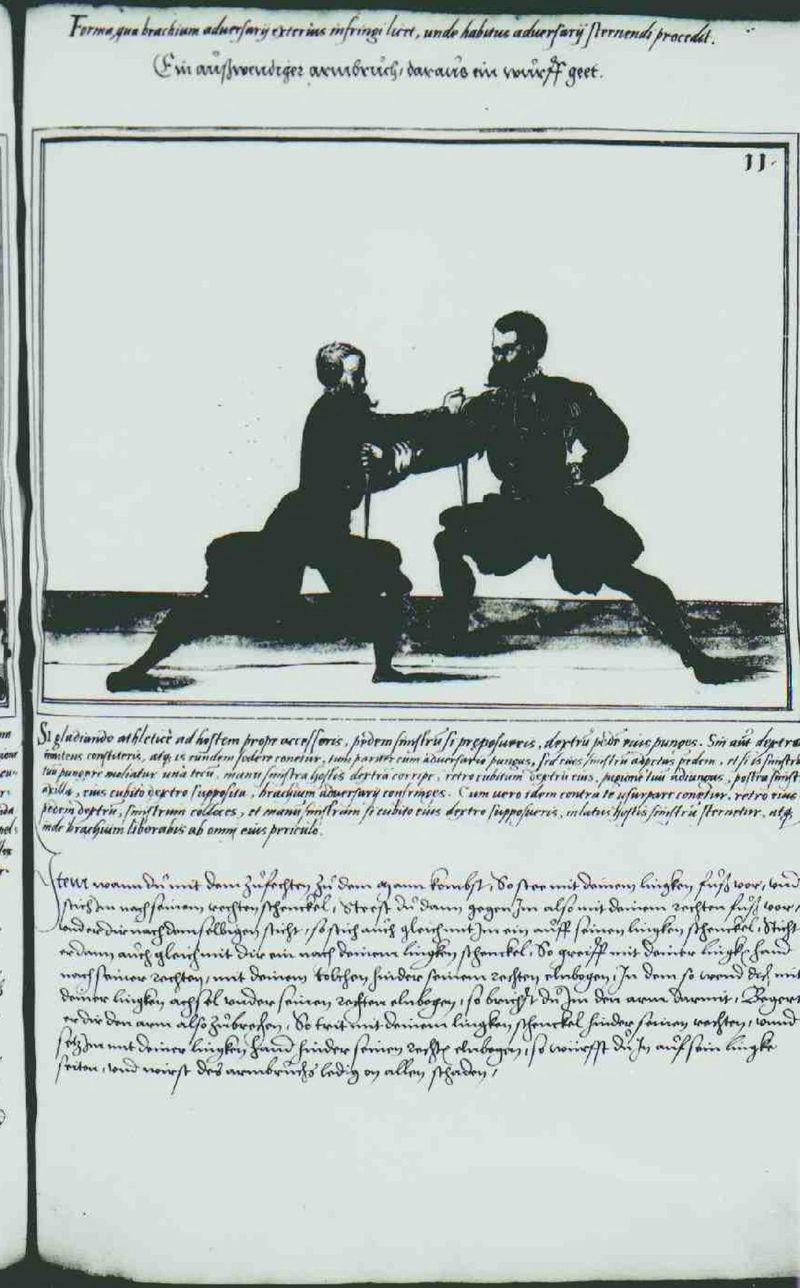 Forma, qua brachium adversarij exterius infringi licet, unde habitus adversarij sternendi procedit.
Ein außwendiger armbruch, daraus ein wurff geet.
11.
Si gladiando athleticè ad hostem prope accesseris, pedem sinistrū si preposueris, dextrū pedē eius punges. Sin aūt dextro
innitens constiteris, atq. is eundem fodere conetur, tum pariter cum adversario punges, sed eius sinistrū adpetas pedem, et si is sinistrū
tuū pungere moliatur una tecū, manu sinistra hostis dextrā corripe, retro cubitum dextrū eius, pugione tuū adiungas, postea sinistra
axilla, eius cubito dextro supposita, brachium adversarij confringes. Cum vero idem contra te usurpare conetur, retro eius
pedem dextrū, sinistrum colloces, et manū sinistram si cubito eius dextro supposueris, in latus hostis sinistrū sternetur, atq.
inde brachium liberabis ab omni eius periculo.
Item wann du mit dem zufechten zu dem Mann kombst, So stee mit deinem lingken fuß vor, und
stich Im nach seinem rechten schenckel, Steest du dann gegen Im also mit deinem rechten fuß vor,
und er dir nach demselbigen sticht, so stich auch gleich mit Im ein auff seinen lingken schenckel, Sticht
er dann auch gleich mit dir ein nach deinem lingken schenckel, So greiff mit deiner lingken hand
nach seiner rechten, mit deinem tolchen hinder seinem rechten elnbogen, In dem so wend dich mit
deiner lingken achsel under seinen rechten elnbogen, so brichst du Im den arm darmit, Begert
er dir den arm also zubrechen, So trit mit deinem lingken schenckel hinder seinen rechten, unnd
setz Im mit deiner lingken hand hinder seinen rechten elnbogen, so würffst du In auf sein lingke
seiten, und wirst des armbruchs ledig on allen schaden,